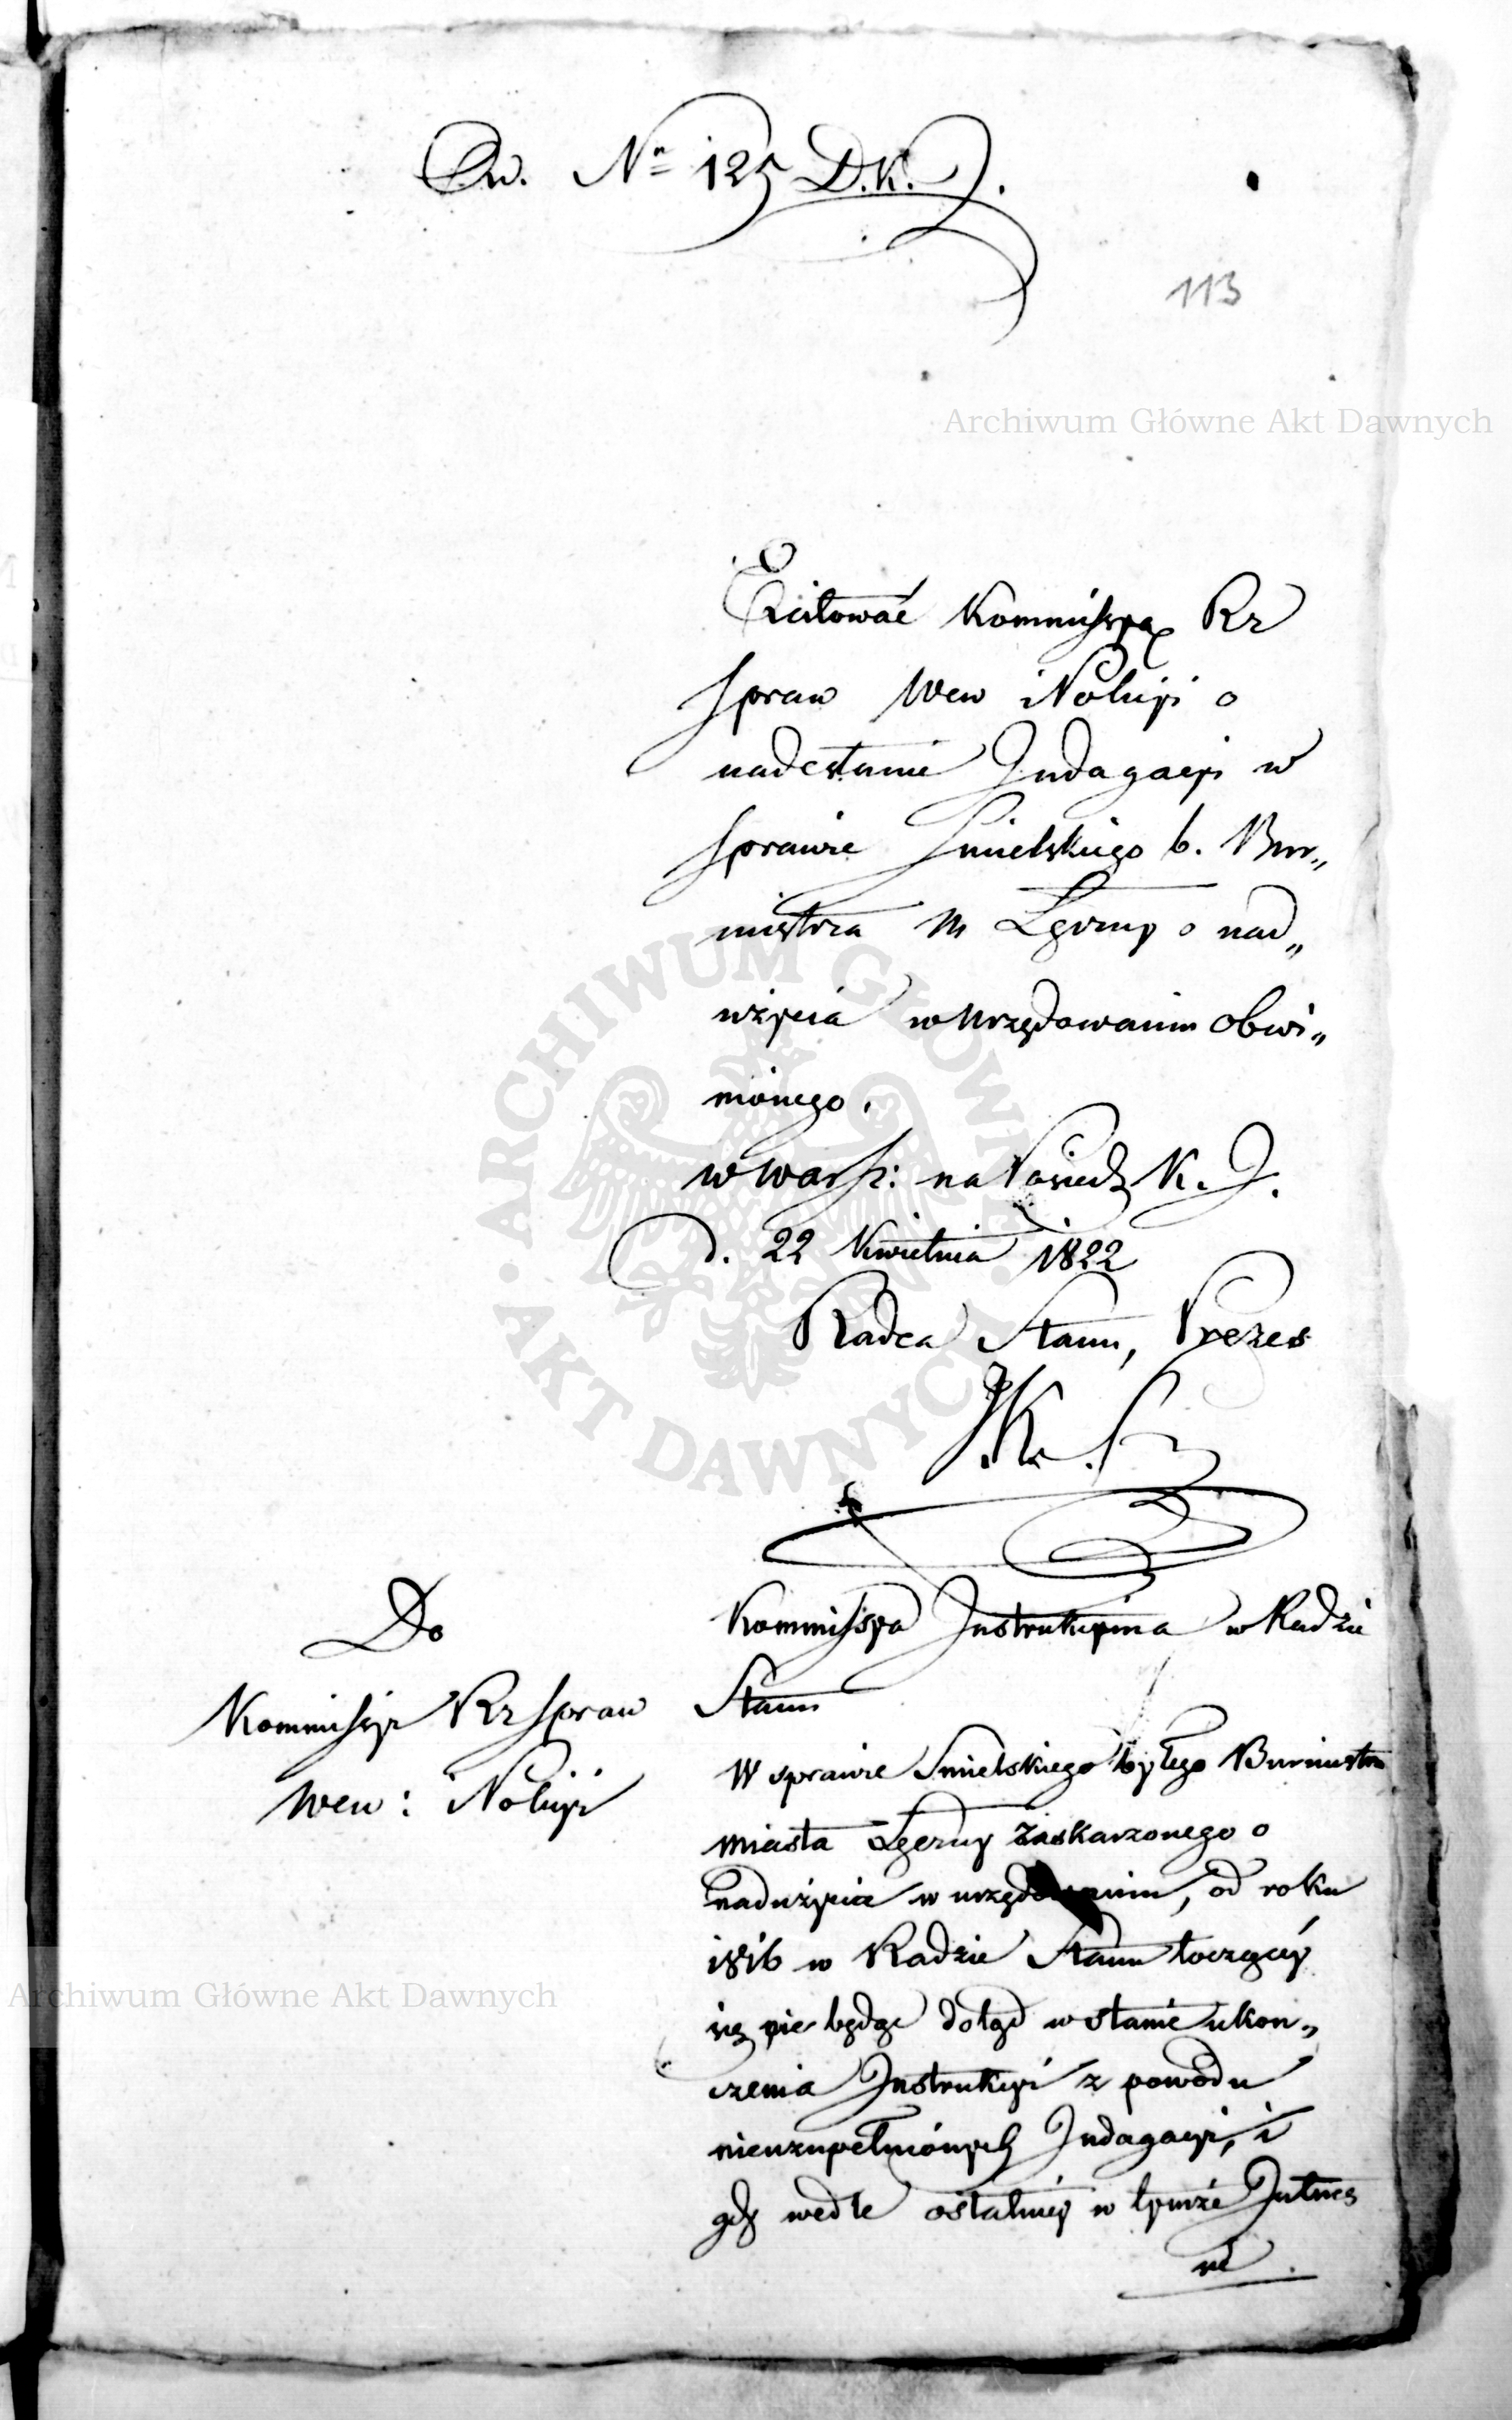 Dw. Nr 125 D.K.J.
113
Archiwum Główne Akt Dawnych
Excitować Kommissyą Rz
Spraw Wew i Policyi o
nadesłanie Indagacyi w
Sprawie Smielskiego b. Bur„
mistrza M Łęczny o nad„
użycia w Urzędowaniu obwi„
nionego.
w Warsz: na Posiedz K. J.
d. 22 Kwietnia 1822
Radca Stanu, Prezes
Do
Kommissyi Rz Spraw
Wew: i Policyi
Kommissya Instrukcyina w Radzie
Stanu
W sprawie Smielskiego byłego Burmistrza
miasta Łęczny zaskarzonego o
nadużycia w urzędowaniu, od roku
1816 w Radzie Stanu toczącey
się nie będąc dotąd w stanie ukon„
czenia Instrukcyi z powodu
nieuzupełnionych Indagacyi, i
gdy wedle ostatniey w tymże Intres
sie
Archiwum Główne Akt Dawnych
ARCHIWUM GŁÓWNE · AKT DAWNYCH ·